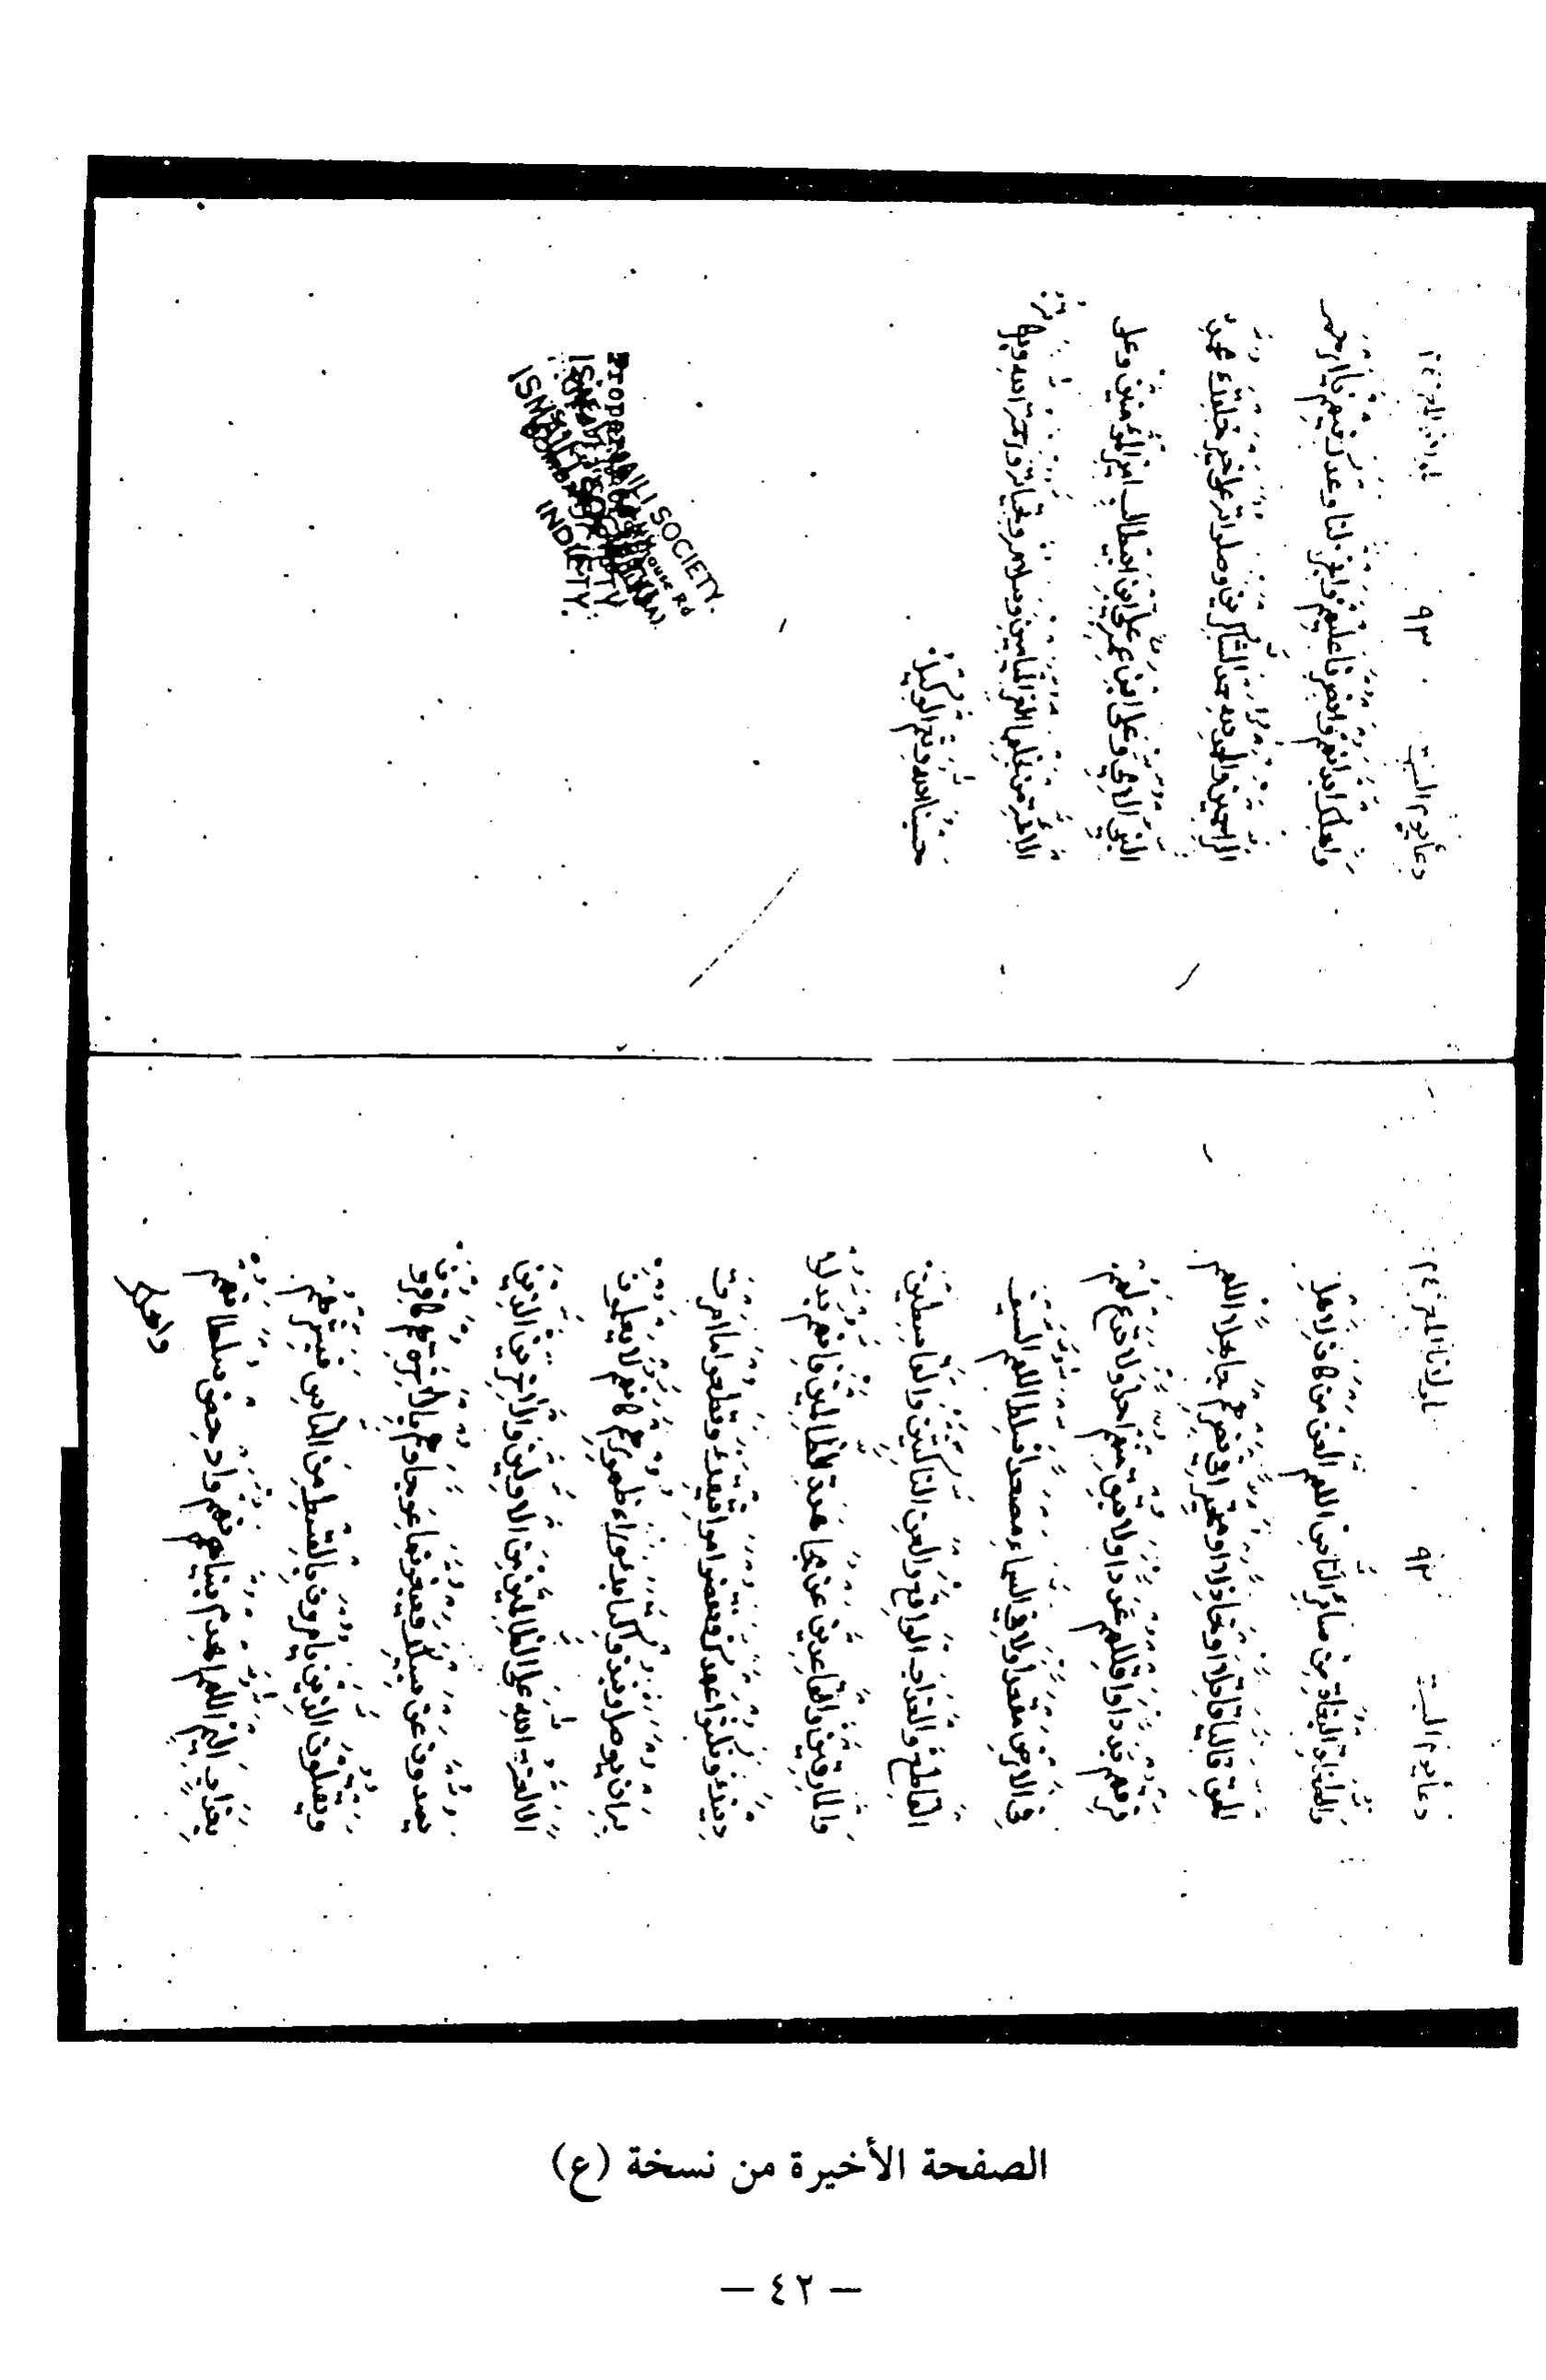 دعاء يوم السبت ٩٢ لمولانا المعز ع م
والعناد والبغاة من سائر الناس اللهم العن من
الحق قاليا قاتلا او خاذلا او مقصرا في نصرهم جاهلا اللهم
فرقهم بددا واقللهم عددا ولا تبق منهم احدا ولا تدع لهم
في الارض مقعدا ولا في السماء مصعدا سلط اللهم السيف
القاطع والعذاب الواقع والعن الناكثين والقاسطين
والمارقين والقاعدين عن مجاهدة الظالمين فانهم بدلوا
دينك ونكثوا عهدك وقطعوا ما امرت
به ان يوصل ونبذوا كتابك وراء ظهورهم كانهم لا يعلمون
الا لعنة الله على الظالمين من الاولين والآخرين الذين
يصدون عن سبيلك ويبغونها عوجا وهم بالآخرة هم كافرون
ويقتلون الذين يامرون بالقسط من الناس فبشرهم
بعذاب اليم اللهم اهدم بنيانهم وادحض سلطانهم
واهلك
دعاء يوم السبت ٩٣ لمولانا المعز ع م
واهلك اعدائهم وانصرنا عليهم وانجز لنا وعدك فيهم يا ارحم
الراحمين والحمد لله حمد الشاكرين وصلواته على خير خلقك محمد
النبي الامي وعلى ابن عمه علي ابن ابيطالب امير المؤمنين وعلى
الائمة من نجلهما الغر الميامين وسلامه وتحياته ورحمة الله وبركاته
حسبنا الله ونعم الوكيل
Property
ISMAILI SOCIETY
ISMAILI SOCIETY.
INDIA
الصفحة الأخيرة من نسخة (ع)
— ٤٢ —